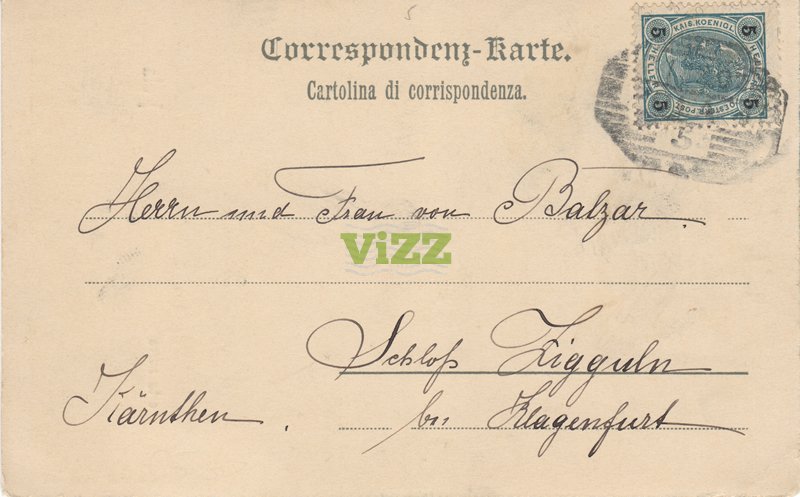 5
Correspondenz-Karte.
Cartolina di corrispondenza.
KAIS. KOENIGL.
OESTERR. POST
5 HELLER 5
5 HELLER 5
5
Herrn und Frau von Balzar.
ViZZ
Schloß Zigguln
Kärnthen. bei Klagenfurt